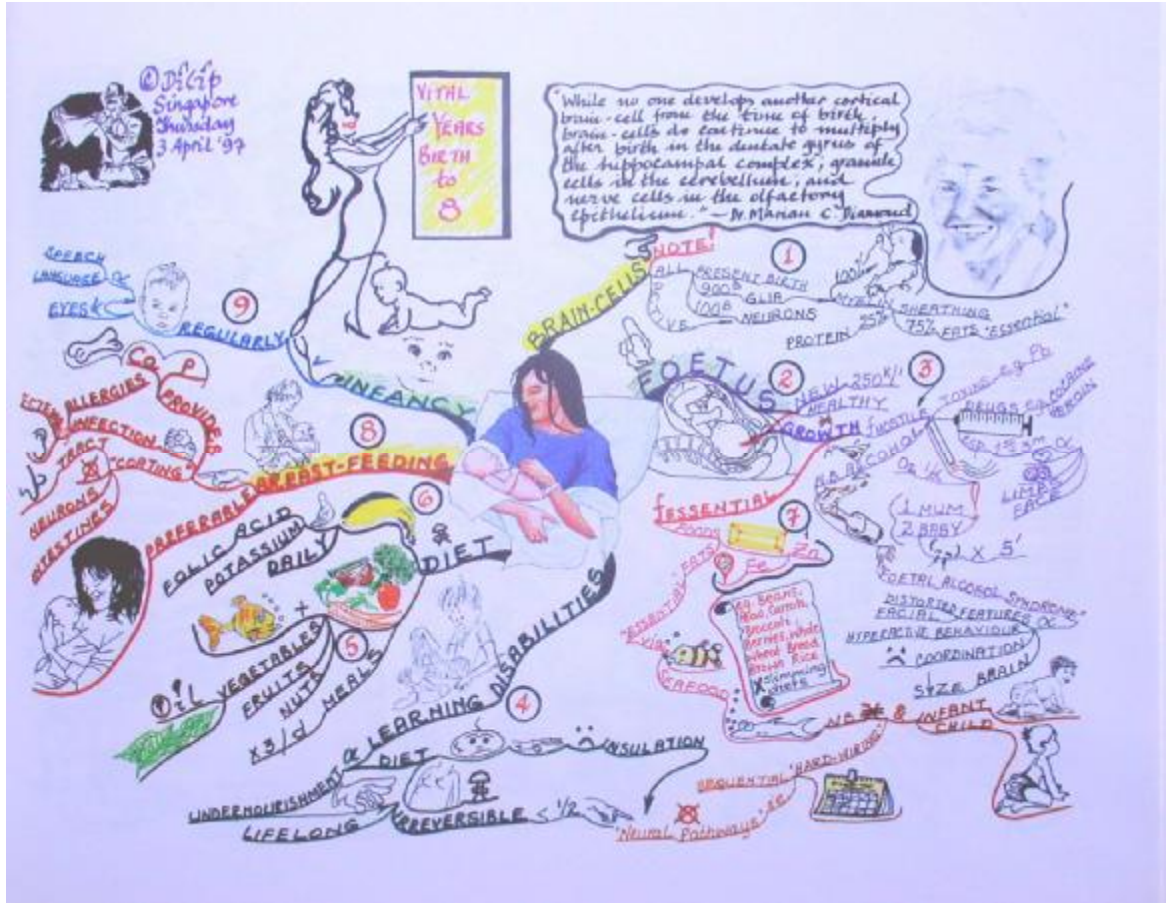 © Dilip
Singapore
Thursday
3 April '97
VITAL
YEARS
BIRTH
to
8
"While no one develops another cortical
brain-cell from the time of birth,
brain-cells do continue to multiply
after birth in the dentate gyrus of
the hippocampal complex, granule
cells in the cerebellum, and
nerve cells in the olfactory
epithelium." — Dr. Marian C. Diamond
BRAIN-CELLS
NOTE!
1
ALL PRESENT BIRTH
900B GLIA
100B NEURONS
100%
MYELIN SHEATHING
PROTEIN 25%
75% FATS "ESSENTIAL"
FOETUS
2
N.B.W. 250K/1
HEALTHY
GROWTH
3
HOSTILE
TOXINS e.g. Pb
DRUGS e.g. COCAINE
HEROIN
LIMBS
FACE
N.B. ALCOHOL
1 MUM
2 BABY
X 5'
"FOETAL ALCOHOL SYNDROME"
DISTORTED FEATURES
FACIAL
HYPERACTIVE BEHAVIOUR
COORDINATION
SIZE BRAIN
ESSENTIAL
7
Fe
Zn
"ESSENTIAL" FATS
via
SEAFOOD
e.g. Beans,
Peas, Carrots,
Broccoli
Berries, Whole
wheat Bread
Brown Rice
X slimming
diets
N.B.
&
INFANT
CHILD
SEQUENTIAL 'HARD-WIRING'
'Neural Pathways'
LEARNING DISABILITIES
4
DIET
INSULATION
UNDERNOURISHMENT
LIFELONG
IRREVERSIBLE
< 1/2
DIET
6
FOLIC ACID
POTASSIUM
DAILY
5
+
VEGETABLES
FRUITS
NUTS
X3/d MEALS
BREAST-FEEDING
8
PREFERABLE
PROVIDES
Ca P
ALLERGIES
INFECTION
TRACT
"COATING"
NEURONS
INTESTINES
INFANCY
9
REGULARLY
SPEECH
LANGUAGE
EYES